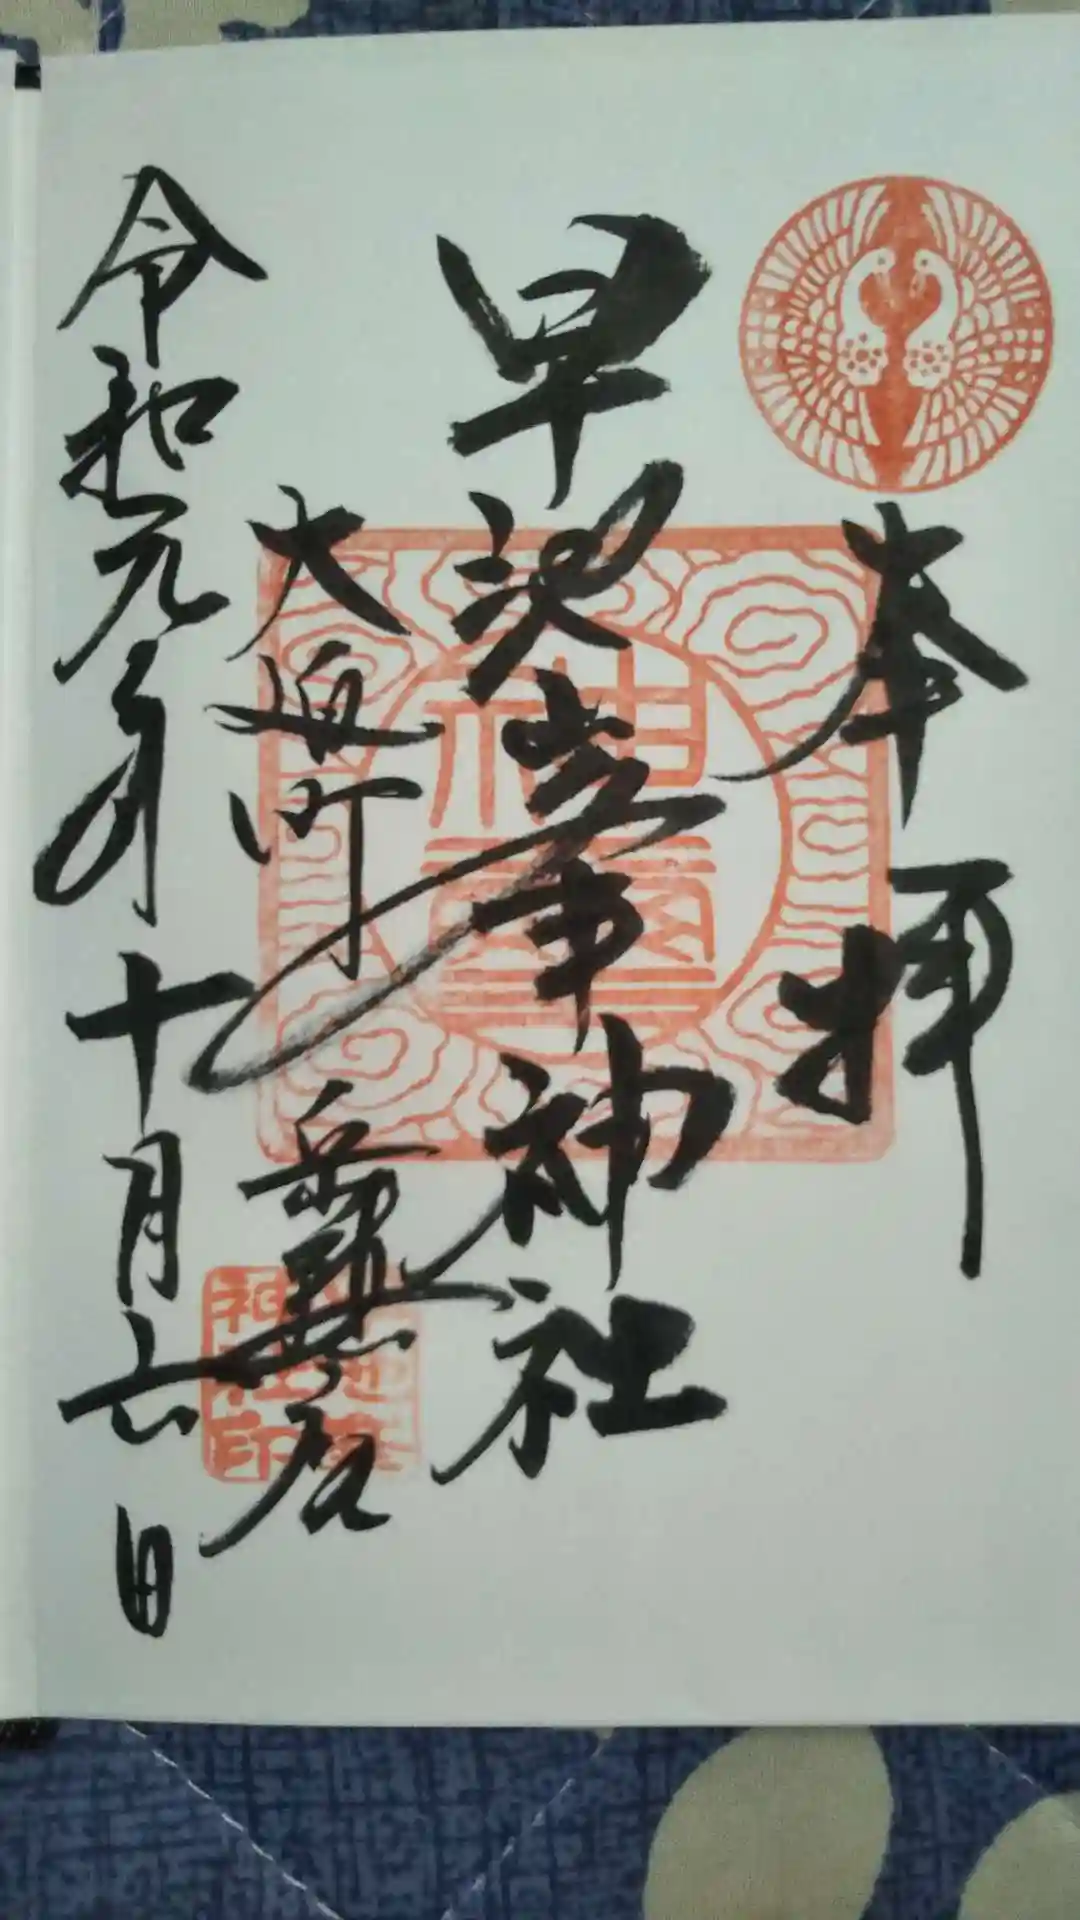 奉拝
早池峯神社
大迫町
岳
令和元年十月六日
神社印